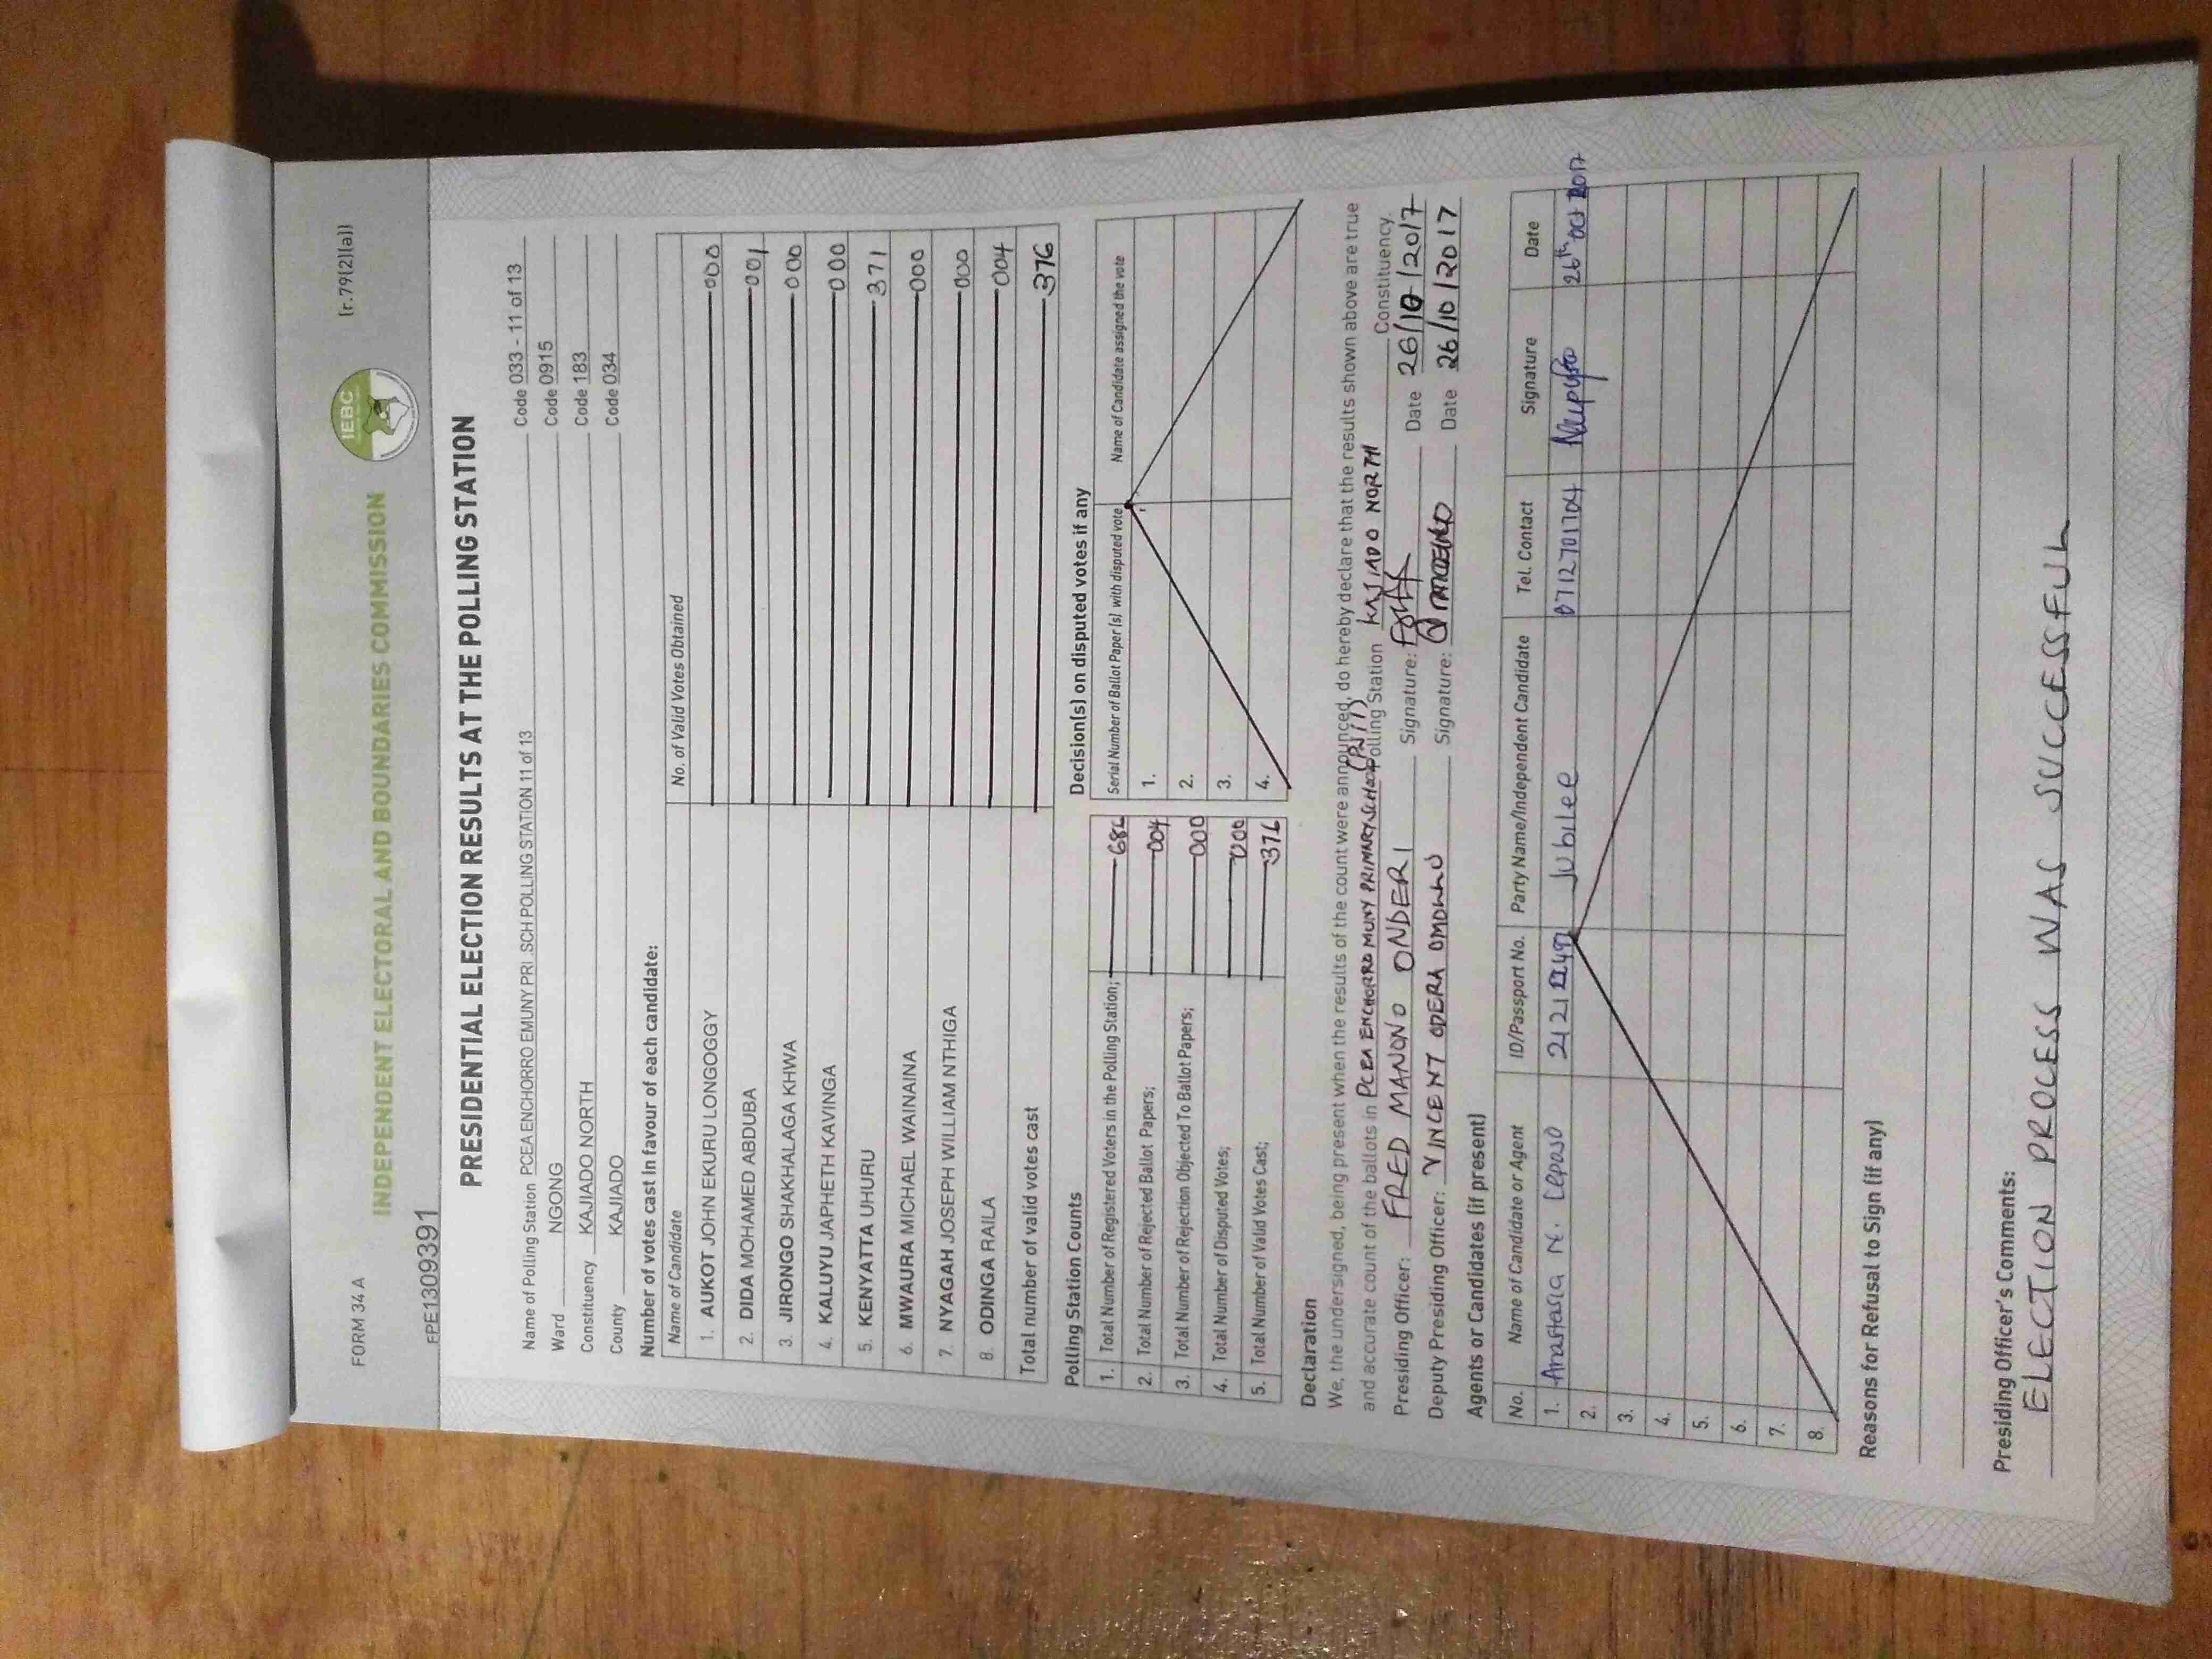 FORM 34 A
(r.79(2)(a))
INDEPENDENT ELECTORAL AND BOUNDARIES COMMISSION
IEBC
EPE1309391
PRESIDENTIAL ELECTION RESULTS AT THE POLLING STATION
Name of Polling Station PCEA ENCHORRO EMUNY PRI .SCH POLLING STATION 11 of 13 Code 033 - 11 of 13
Ward NGONG Code 0915
Constituency KAJIADO NORTH Code 183
County KAJIADO Code 034
Number of votes cast in favour of each candidate:
Name of Candidate No. of Valid Votes Obtained
1. AUKOT JOHN EKURU LONGOGGY 000
2. DIDA MOHAMED ABDUBA 001
3. JIRONGO SHAKHALAGA KHWA 000
4. KALUYU JAPHETH KAVINGA 000
5. KENYATTA UHURU 371
6. MWAURA MICHAEL WAINAINA 000
7. NYAGAH JOSEPH WILLIAM NTHIGA 000
8. ODINGA RAILA 004
Total number of valid votes cast 376
Polling Station Counts
1. Total Number of Registered Voters in the Polling Station;
2. Total Number of Rejected Ballot Papers; 004
3. Total Number of Rejection Objected To Ballot Papers; 000
4. Total Number of Disputed Votes; 000
5. Total Number of Valid Votes Cast; 376
Decision(s) on disputed votes if any
Serial Number of Ballot Paper (s) with disputed vote Name of Candidate assigned the vote
1.
2.
3.
4.
Declaration
We, the undersigned, being present when the results of the count were announced, do hereby declare that the results shown above are true
and accurate count of the ballots in PCEA ENCHORRO MUNY PRIMARY SCHOOL Polling Station KAJIADO NORTH Constituency.
Presiding Officer: FRED MANONO ONDERI Signature: Date 26/10/2017
Deputy Presiding Officer: VINCENT OPERA OMOLLO Signature: Date 26/10/2017
Agents or Candidates (if present)
No. Name of Candidate or Agent ID/Passport No. Party Name/Independent Candidate Tel. Contact Signature Date
1. Anastasia N. Lepaso Jubilee 0712701704 26th Oct 2017
2.
3.
4.
5.
6.
7.
8.
Reasons for Refusal to Sign (if any)
Presiding Officer's Comments:
ELECTION PROCESS WAS SUCCESSFUL